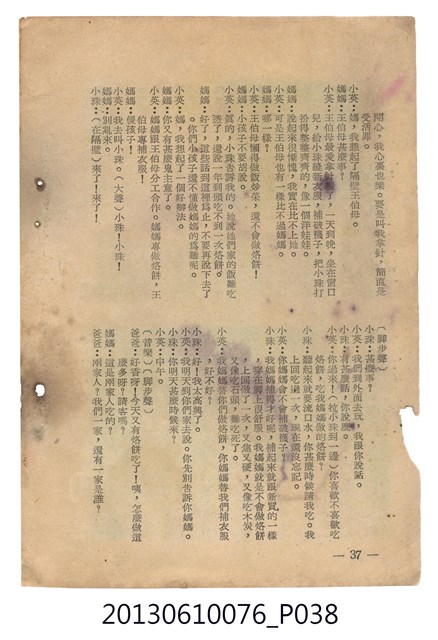 開心，我心裏也樂。要是叫我拿針，簡直是
受活罪。
小英：媽，我想起了隔壁王伯母。
媽媽：王伯母甚麼事？
小英：王伯母最愛拿針了，一天到晚，坐在窗口
兒，給小珠縫新衣服，補破襪子，把小珠打
扮得整整齊齊的，像一個洋娃娃。
媽媽：說起來很慚愧，我實在比不上她。
小英：可是王伯母也有一樣比不過媽媽。
媽媽：哪一樣？
小英：王伯母懶得做飯炒菜，還不會做烙餅！
媽媽：小孩子不要胡說。
小英：真的，小珠告訴我的。她說她們家的飯難吃
透了，還說一年到頭吃不到一次烙餅！
媽媽：好了，這些話到這裡爲止，不要再說下去了
。你們小孩子還不懂做媽媽的爲難呢。
小英：媽，我又想起了一個好辦法。
媽媽：你又有甚麼鬼主意了。
小英：媽媽跟王伯母分工合作。媽媽專做烙餅，王
伯母專補衣服！
媽媽：傻孩子！
小英：我去叫小珠。（大聲）小珠！小珠！
媽媽：別亂來。
小珠：（在隔壁）來了！來了！
（脚步聲）
小珠：甚麼事？
小英：我們到外面去玩，我跟你說話。
小珠：有甚麼話，你說麼。
小英：你過來！（拉小珠到一邊）你喜歡不喜歡吃
烙餅，吃我媽媽做的烙餅？
小珠：聽起來就要流口水。你甚麼時候請我吃。我
上回吃過一次，現在還沒忘記。
小英：你媽媽會不會補破襪子？
小珠：我媽媽補得才好呢，補起來就跟新買的一樣
，穿在脚上很舒服。我媽媽就是不會做烙餅
，上回做了一次，又焦又硬，又像吃木炭，
又像吃石頭，難吃死了。
小英：我媽媽替你們做烙餅，你媽媽替我們補衣服
，好不好？
小珠：好，我太高興了。
小英：我明天到你們家去說。你先別告訴你媽媽。
小珠：你明天甚麼時候來？
小英：中午。
（音樂）（脚步聲）
爸爸：好香呀！今天又有烙餅吃了！咦，怎麼做這
麼多呀？請客嗎？
媽媽：這是兩家人吃的。
爸爸：兩家人？我們一家，還有一家是誰？
— 37 —
20130610076_P038